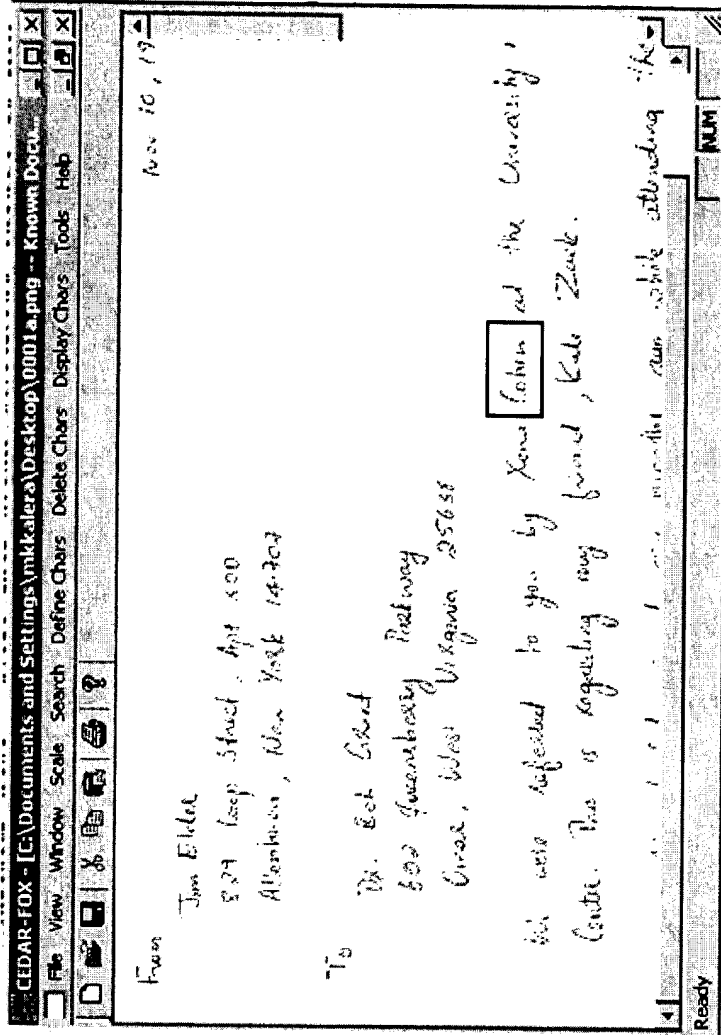 CEDAR-FOX - [C:\Documents and Settings\mkkalera\Desktop\0001a.png -- Known Docu...
File View Window Scale Search Define Chars Delete Chars Display Chars Tools Help
Nov 10, 19
From
Jim Elder
829 Loop Street, Apt 300
Allentown, New York 14707
To
Dr. Bob Grant
602 Queensberry Parkway
Omar, West Virginia 25638
We were referred to you by Xena Cohen at the University
Centre. This is regarding my friend, Kate Zack.
while attending the
Ready
NUM